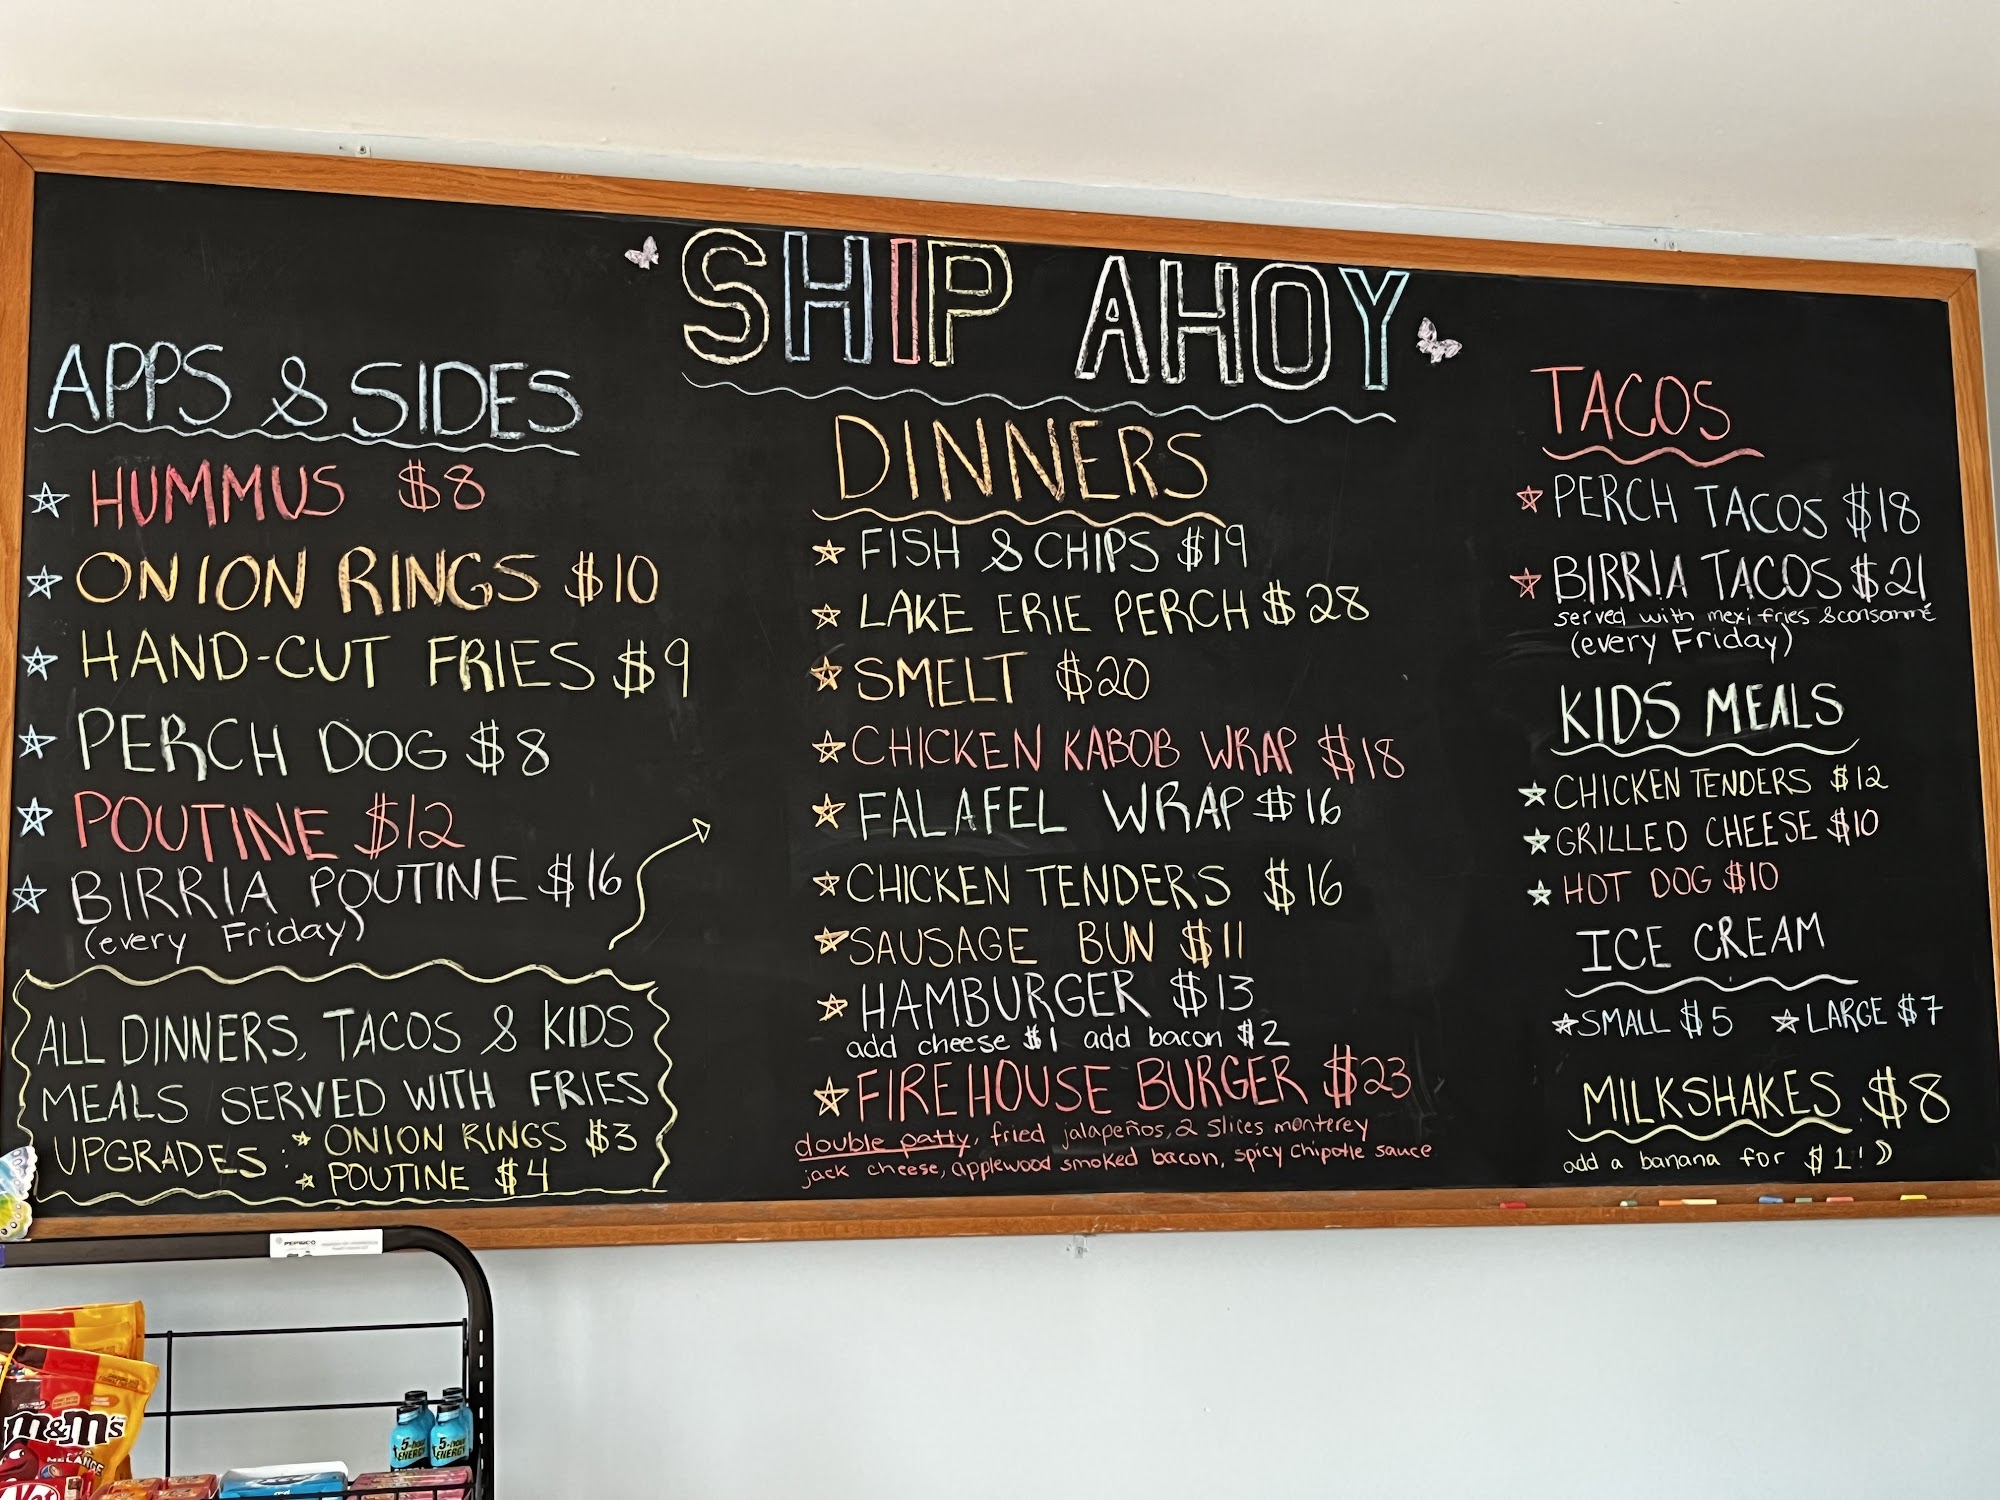 SHIP AHOY
APPS & SIDES
HUMMUS $8
ONION RINGS $10
HAND-CUT FRIES $9
PERCH DOG $8
POUTINE $12
BIRRIA POUTINE $16
(every Friday)
ALL DINNERS, TACOS & KIDS
MEALS SERVED WITH FRIES
UPGRADES: ONION RINGS $3
POUTINE $4
DINNERS
FISH & CHIPS $19
LAKE ERIE PERCH $28
SMELT $20
CHICKEN KABOB WRAP $18
FALAFEL WRAP $16
CHICKEN TENDERS $16
SAUSAGE BUN $11
HAMBURGER $13
add cheese $1 add bacon $2
FIREHOUSE BURGER $23
double patty, fried jalapeños, 2 slices monterey
jack cheese, applewood smoked bacon, spicy chipotle sauce
TACOS
PERCH TACOS $18
BIRRIA TACOS $21
served with mexi fries & consommé
(every Friday)
KIDS MEALS
CHICKEN TENDERS $12
GRILLED CHEESE $10
HOT DOG $10
ICE CREAM
SMALL $5 LARGE $7
MILKSHAKES $8
add a banana for $1!
PEPSICO
m&m's
MÉLANGE
5-hour
ENERGY
5-hour
ENERGY